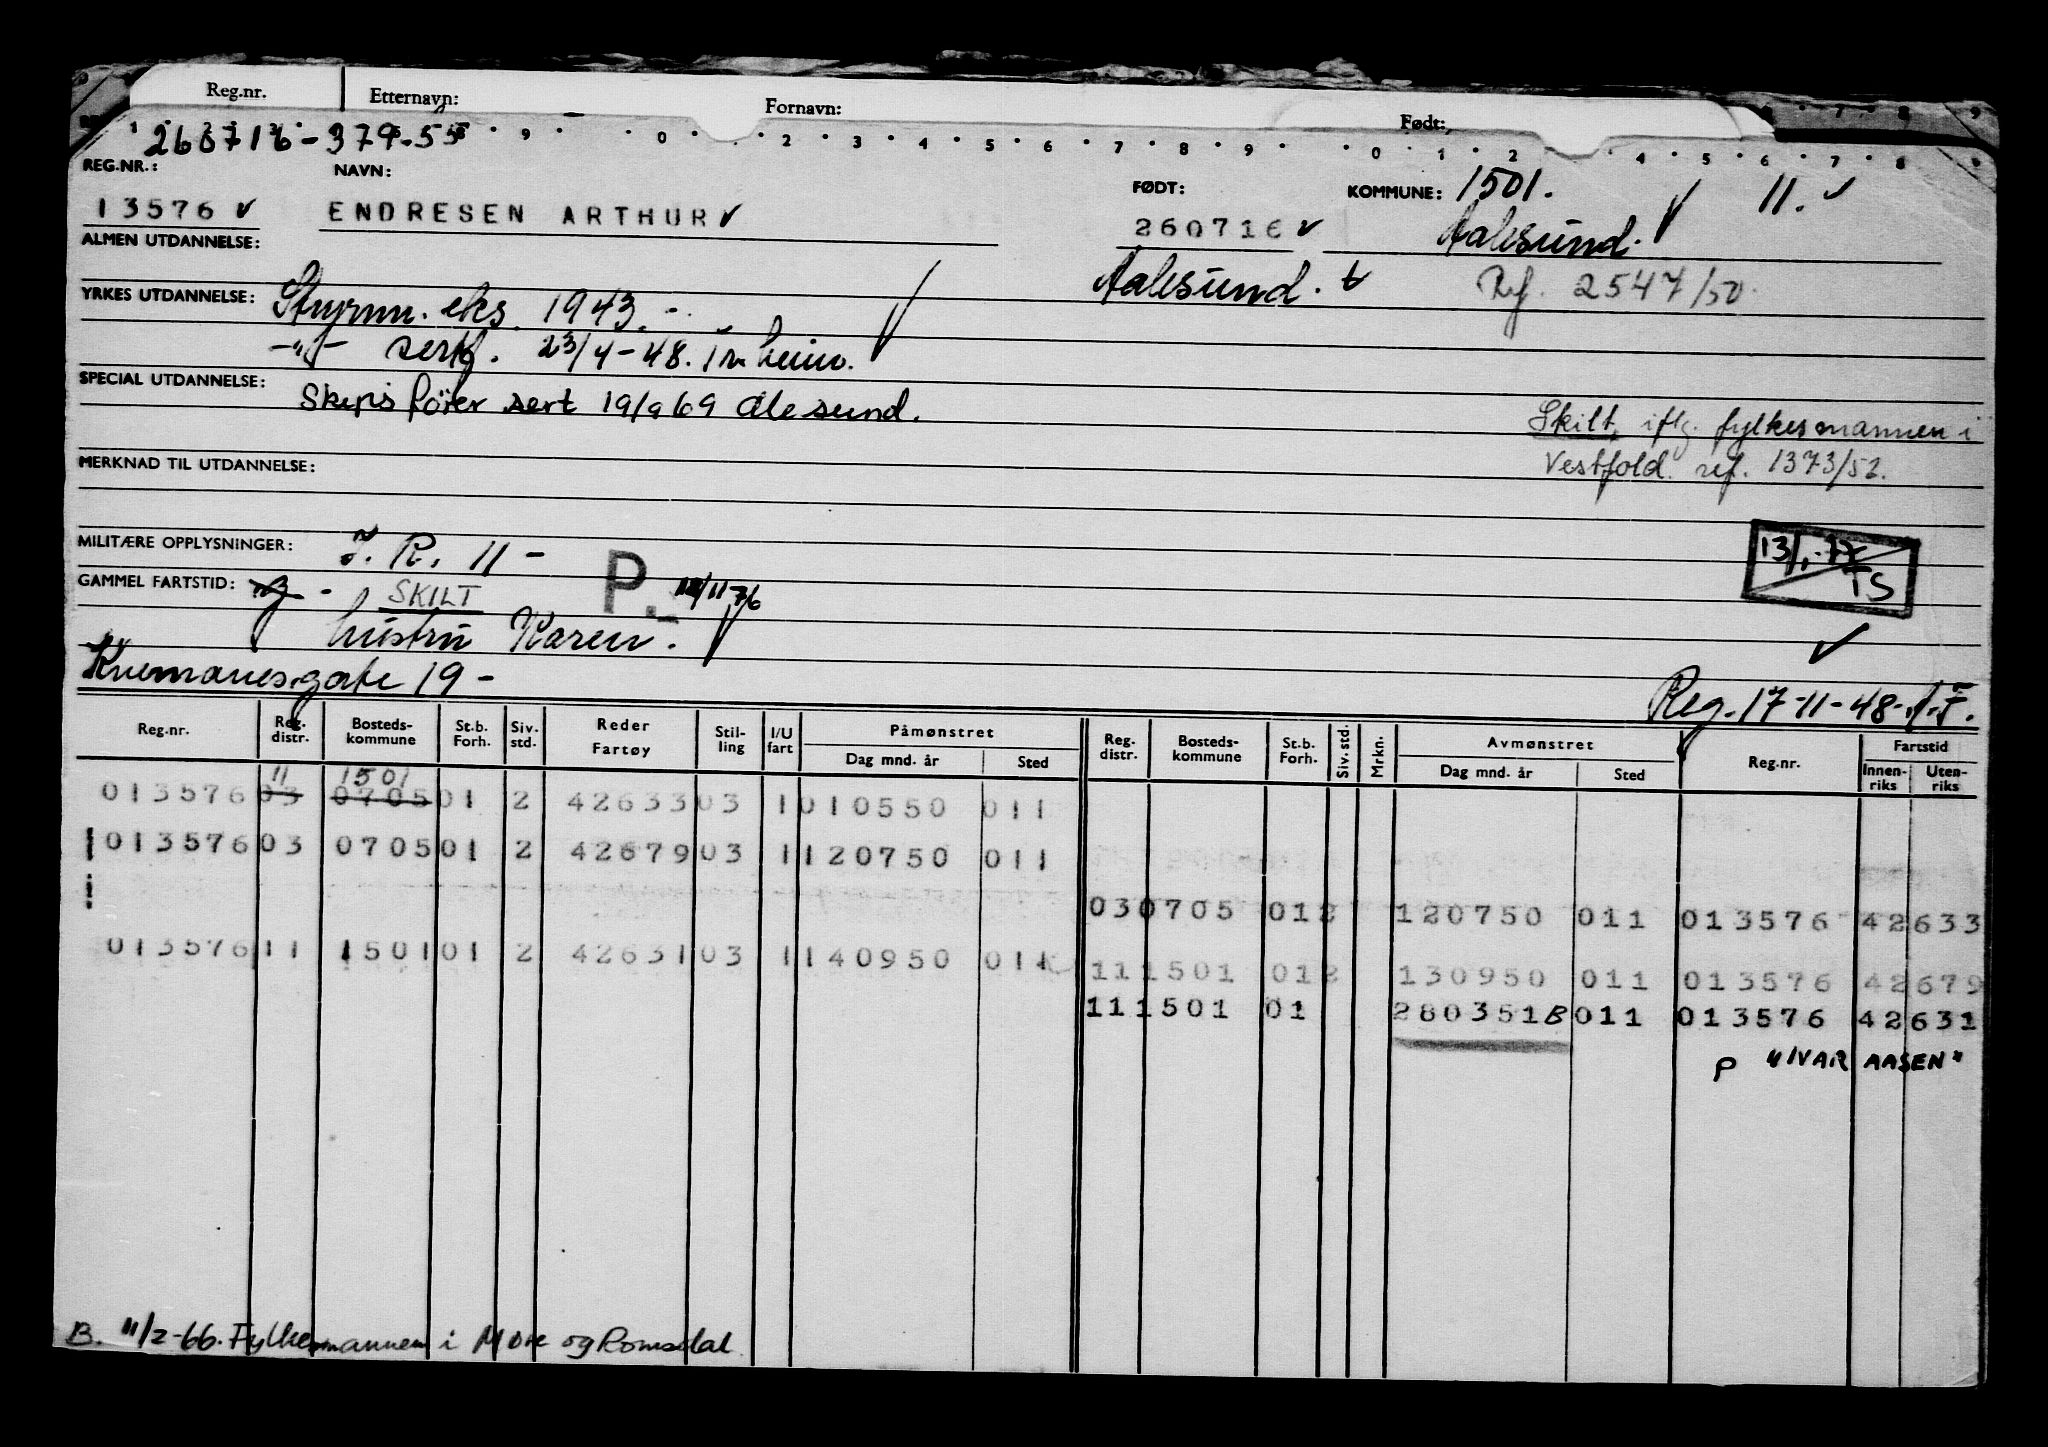 Reg.nr. Etternavn: Fornavn: Født:
260716-379.55
REG.NR.: NAVN: FØDT: KOMMUNE: 1501. 11.
13576 ENDRESEN ARTHUR 260716 Aalesund.
ALMEN UTDANNELSE: Aalesund. Ref. 2547/50.
YRKES UTDANNELSE: Styrm. eks. 1943.-
-"- sertf. 23/4-48. Tr.heim.
SPECIAL UTDANNELSE: Skipsfører sert 19/9 69 Ålesund.
Skilt, iflg. fylkesmannen i
Vestfold. ref. 1373/52.
MERKNAD TIL UTDANNELSE:
MILITÆRE OPPLYSNINGER: I. R. 11 -
13/1-77
TS
GAMMEL FARTSTID: SKILT P. 11/11 76
hustru Karen.
gate 19 - Reg. 17-11-48-
Reg.nr. Reg. distr. Bosteds- kommune St.b. Forh. Siv. std. Reder Fartøy Stil- ling I/U fart Påmønstret Dag mnd. år Sted Reg. distr. Bosteds- kommune St.b. Forh. Siv. std. Mrkn. Avmønstret Dag mnd. år Sted Reg.nr. Fartstid Innen- riks Uten- riks
11 1501
013576 03 0705 01 2 42633 03 1 010550 011
013576 03 0705 01 2 42679 03 1 120750 011
03 0705 01 2 120750 011 013576 42633
013576 11 1501 01 2 42631 03 1 140950 011
11 1501 01 2 130950 011 013576 42679
11 1501 01 280351 B 011 013576 42631
P "IVAR AASEN"
B. 11/2-66. Fylkesmannen i Møre og Romsdal